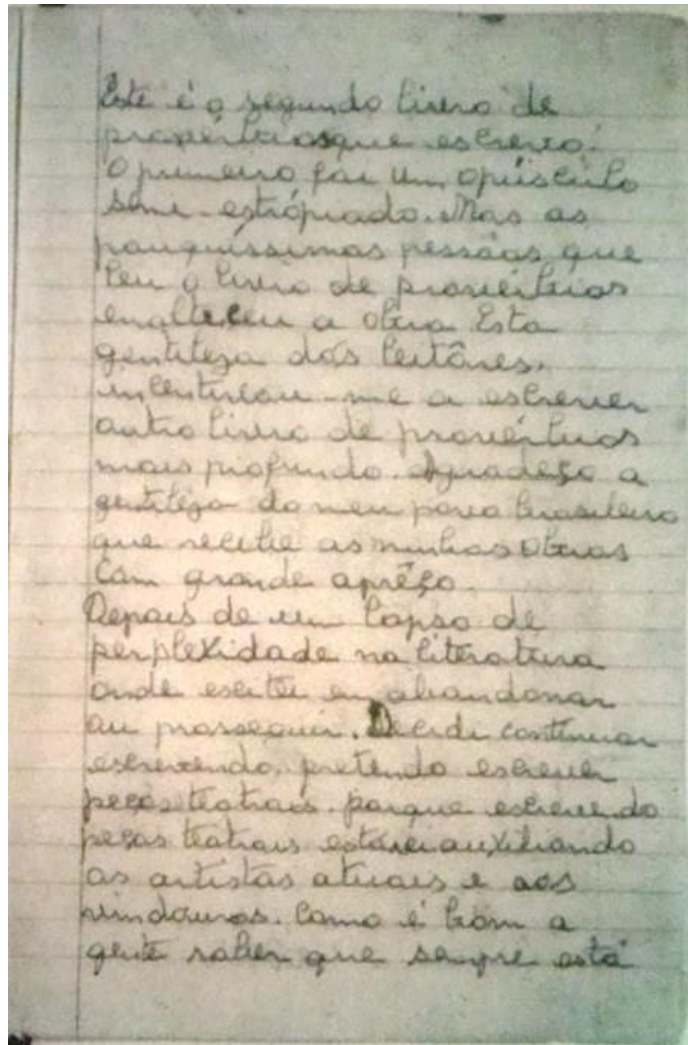 Este é o segundo livro de
proverbios que escrevo.
O primeiro foi um opúsculo
semi-estrópiado. Mas as
pouquissimas pessôas que
leu o livro de provérbios
enalteceu a obra Esta
gentileza dos leitôres.
incentivou-me a escrever
outro livro de provérbios
mais profundo. Agradeço a
gentileza do meu povo brasileiro
que recebe as minhas obras
com grande aprêço.
Depois de um lapso de
perplexidade na literatura
onde exitei em abandonar
ou prosseguir. Decidi continuar
escrevendo. pretendo escrever
peças teatrais. porque escrevendo
peças teatrais estarei auxiliando
os artistas atuais e aos
vindouros. Como é bom a
gente saber que sempre está